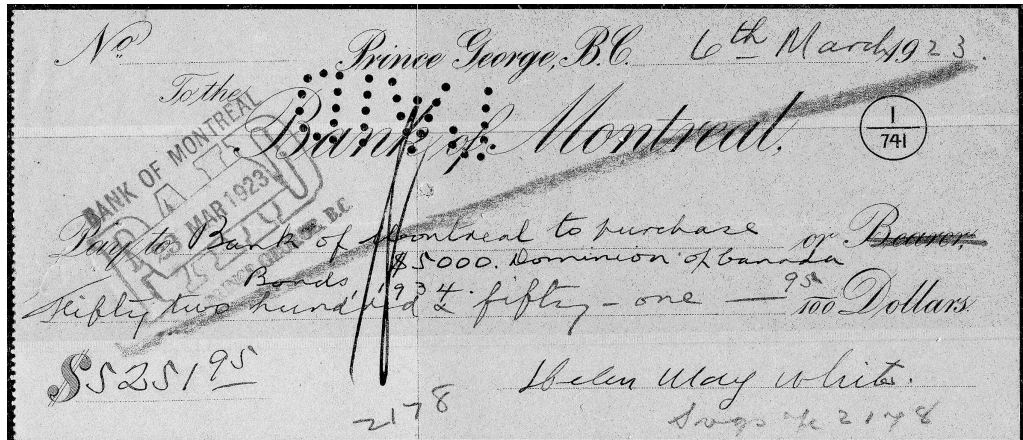 No. Prince George, B.C. 6th March 1923.
To the
Bank of Montreal,
1
741
BANK OF MONTREAL
PAID
MAR 1923
PRINCE GEORGE, B.C
Pay to Bank of Montreal to purchase or Bearer
$5000. Dominion of Canada
Bonds, 1934.
Fifty two hundred & fifty-one — 95/100 Dollars.
$5251 95
Helen May White.
2178
Svgs A/c 2178